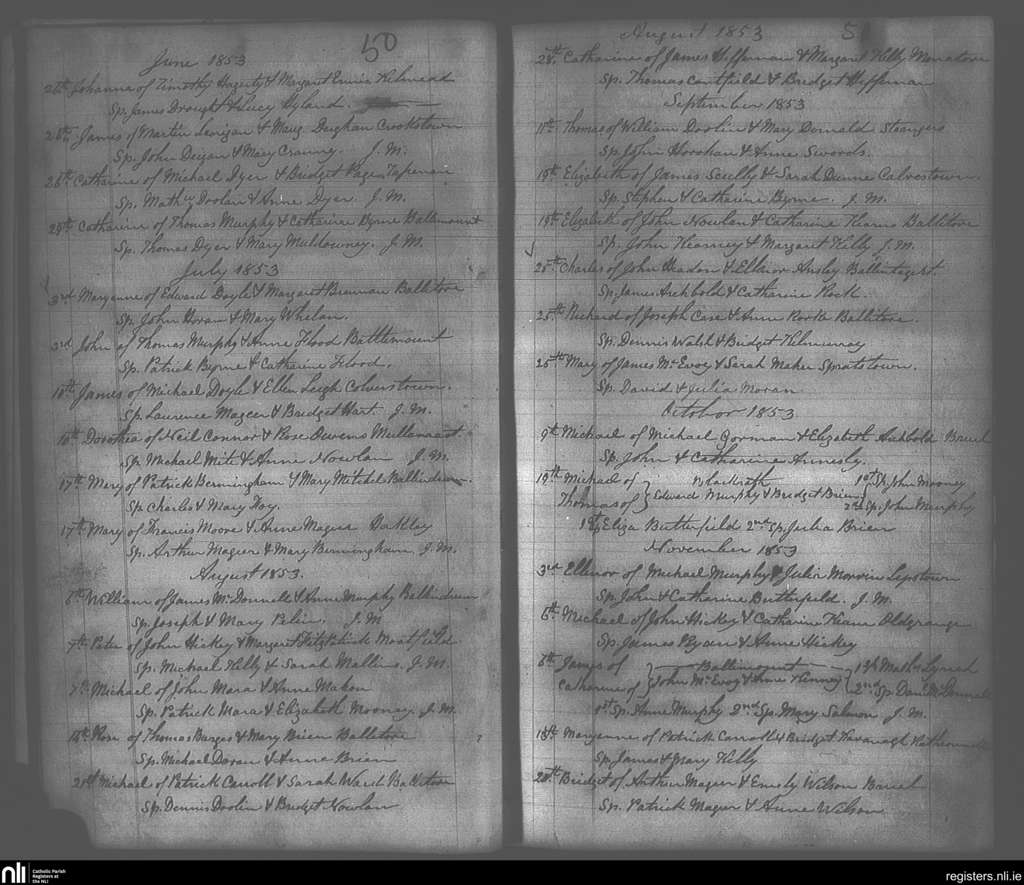 50
June 1853
26th Johanna of Timothy Hagerty & Margaret Ennis Kilmead
Sp. James Drought & Lucy Hyland.
26th James of Martin Lanigan & Marg. Deighan Crookstown
Sp. John Deigan & Mary Cranny. J. M.
26th Catharine of Michael Dyer & Bridget Page
Sp. Mathw Doolan & Anne Dyer J. M.
29th Catharine of Thomas Murphy & Catharine Byrne Battlemount
Sp. Thomas Dyer & Mary Muldowney. J. M.
July 1853
3rd Maryanne of Edward Doyle & Margaret Brennan Ballitore
Sp. John Horan & Mary Whelan.
3rd John of Thomas Murphy & Anne Flood Battlemount
Sp. Patrick Byrne & Catharine Flood.
10th James of Michael Doyle & Ellen Leigh Colverstown.
Sp. Laurence Mageer & Bridget Hart J. M.
10th Dorothea of Neil Connor & Rose Davens
Sp. Michael Mite & Anne Nowlan J. M.
17th Mary of Patrick Bermingham & Mary Mitchel
Sp Charles & Mary Foy.
17th Mary of Francis Moore & Anne Mageer
Sp. Arthur Mageer & Mary Bermingham J. M.
August 1853.
6th William of James McDonnell & Anne Murphy
Sp. Joseph & Mary J. M
7th Peter of John Hickey & Margaret Fitzpatrick Moatfield
Sp. Michael Kelly & Sarah Mallin. J. M.
7th Michael of John Mara & Anne Makon
Sp. Patrick Mara & Elizabeth Mooney. J. M.
15th Rose of Thomas Barges & Mary Brien Ballitore
Sp. Michael Doran & Anne Brien
21st Michael of Patrick Carroll & Sarah Ward Ballitore
Sp. Dennis Doolin & Bridget Nowlan
August 1853 5
28th Catharine of James Heffernan & Margaret Kelly
Sp. Thomas Cantfield & Bridget Heffernan
September 1853
11th Thomas of William Doolin & Mary Donnald Strangers
Sp. John Horohan & Anne Swords.
19th Elizabeth of James Scully & Sarah Dunne Calverstown.
Sp. Stephen & Catharine Byrne. J. M.
19th Elizabeth of John Nowlan & Catharine Kearns Ballitore
Sp. John Kearney & Margaret Kelly J. M.
25th Charles of John Headon & Ellinor Ansley
Sp. James Archbold & Catharine Rock.
25th Richard of Joseph Case & Anne Rorke Ballitore.
Sp. Dennis Walsh & Bridget
25th Mary of James McEvoy & Sarah Maher Spratstown.
Sp. David & Julia Moran
October 1853
9th Michael of Michael Gorman & Elizabeth Archbold
Sp. John & Catharine Annesly.
19th Michael of Blackrath 1st Sp. John Mooney
Thomas of Edward Murphy & Bridget Brien 2nd Sp. John Murphy
1st Sp Eliza Butterfield 2nd Sp. Julia Brien
November 1853
3rd Ellinor of Michael Murphy & Julia
Sp. John & Catharine Butterfield. J. M.
6th Michael of John Hickey & Catharine Oldgrange
Sp. James Ryan & Anne Hickey
6th James of Battlemount 1st Sp Mathw Lynch
Catharine of John McEvoy & Anne Kenney 2nd Sp. Danl McDonnell
1st Sp. Anne Murphy 2nd Sp. Mary Salmon J. M.
13th Maryanne of Patrick Carroll & Bridget Kavanagh
Sp. James & Mary Kelly
20th Bridget of Arthur Mageer & Emely Wilson
Sp. Patrick Mageer & Anne Wilson
nli
Catholic Parish
Registers at
the NLI
registers.nli.ie